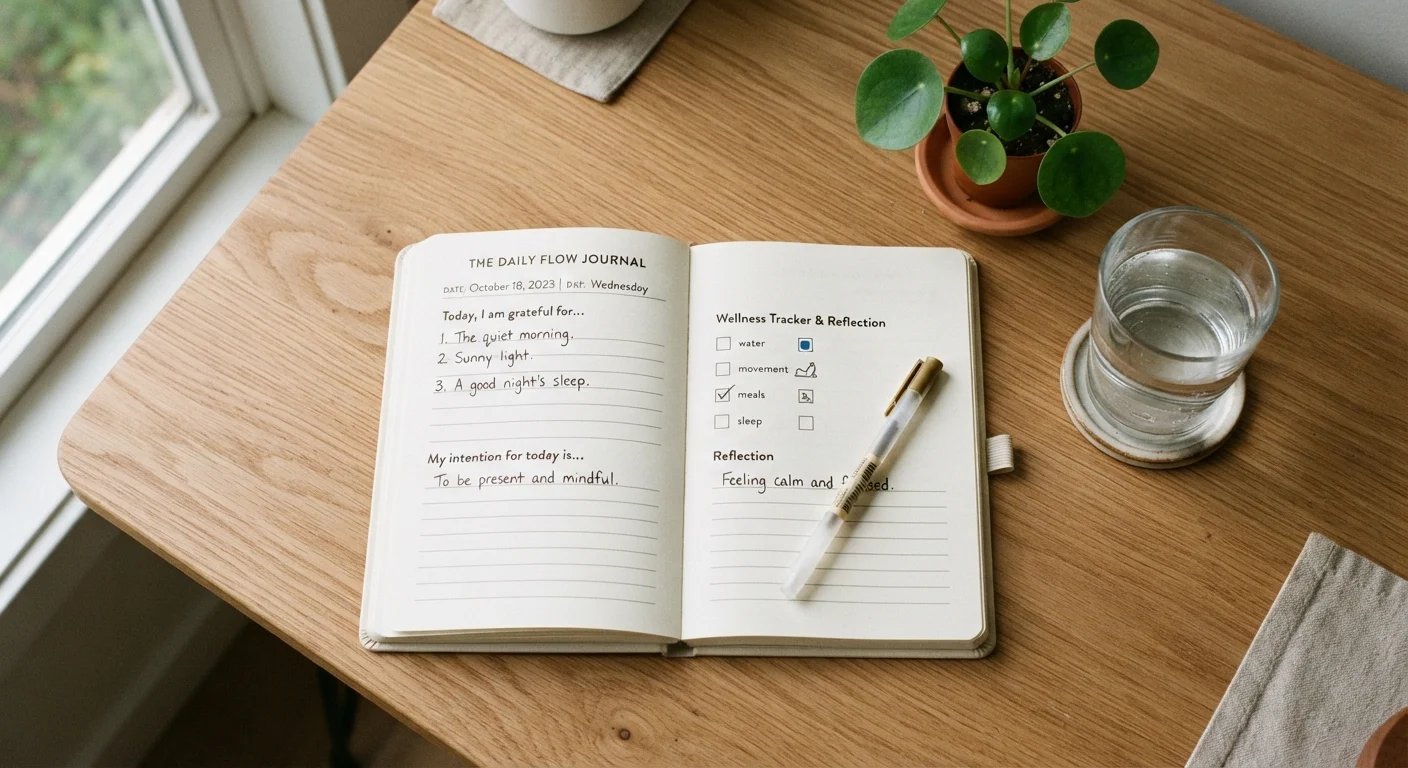 THE DAILY FLOW JOURNAL
DATE: October 18, 2023 | Wednesday
Today, I am grateful for...
1. The quiet morning.
2. Sunny light.
3. A good night's sleep.
My intention for today is...
To be present and mindful.
Wellness Tracker & Reflection
water
movement
meals
sleep
Reflection
Feeling calm and